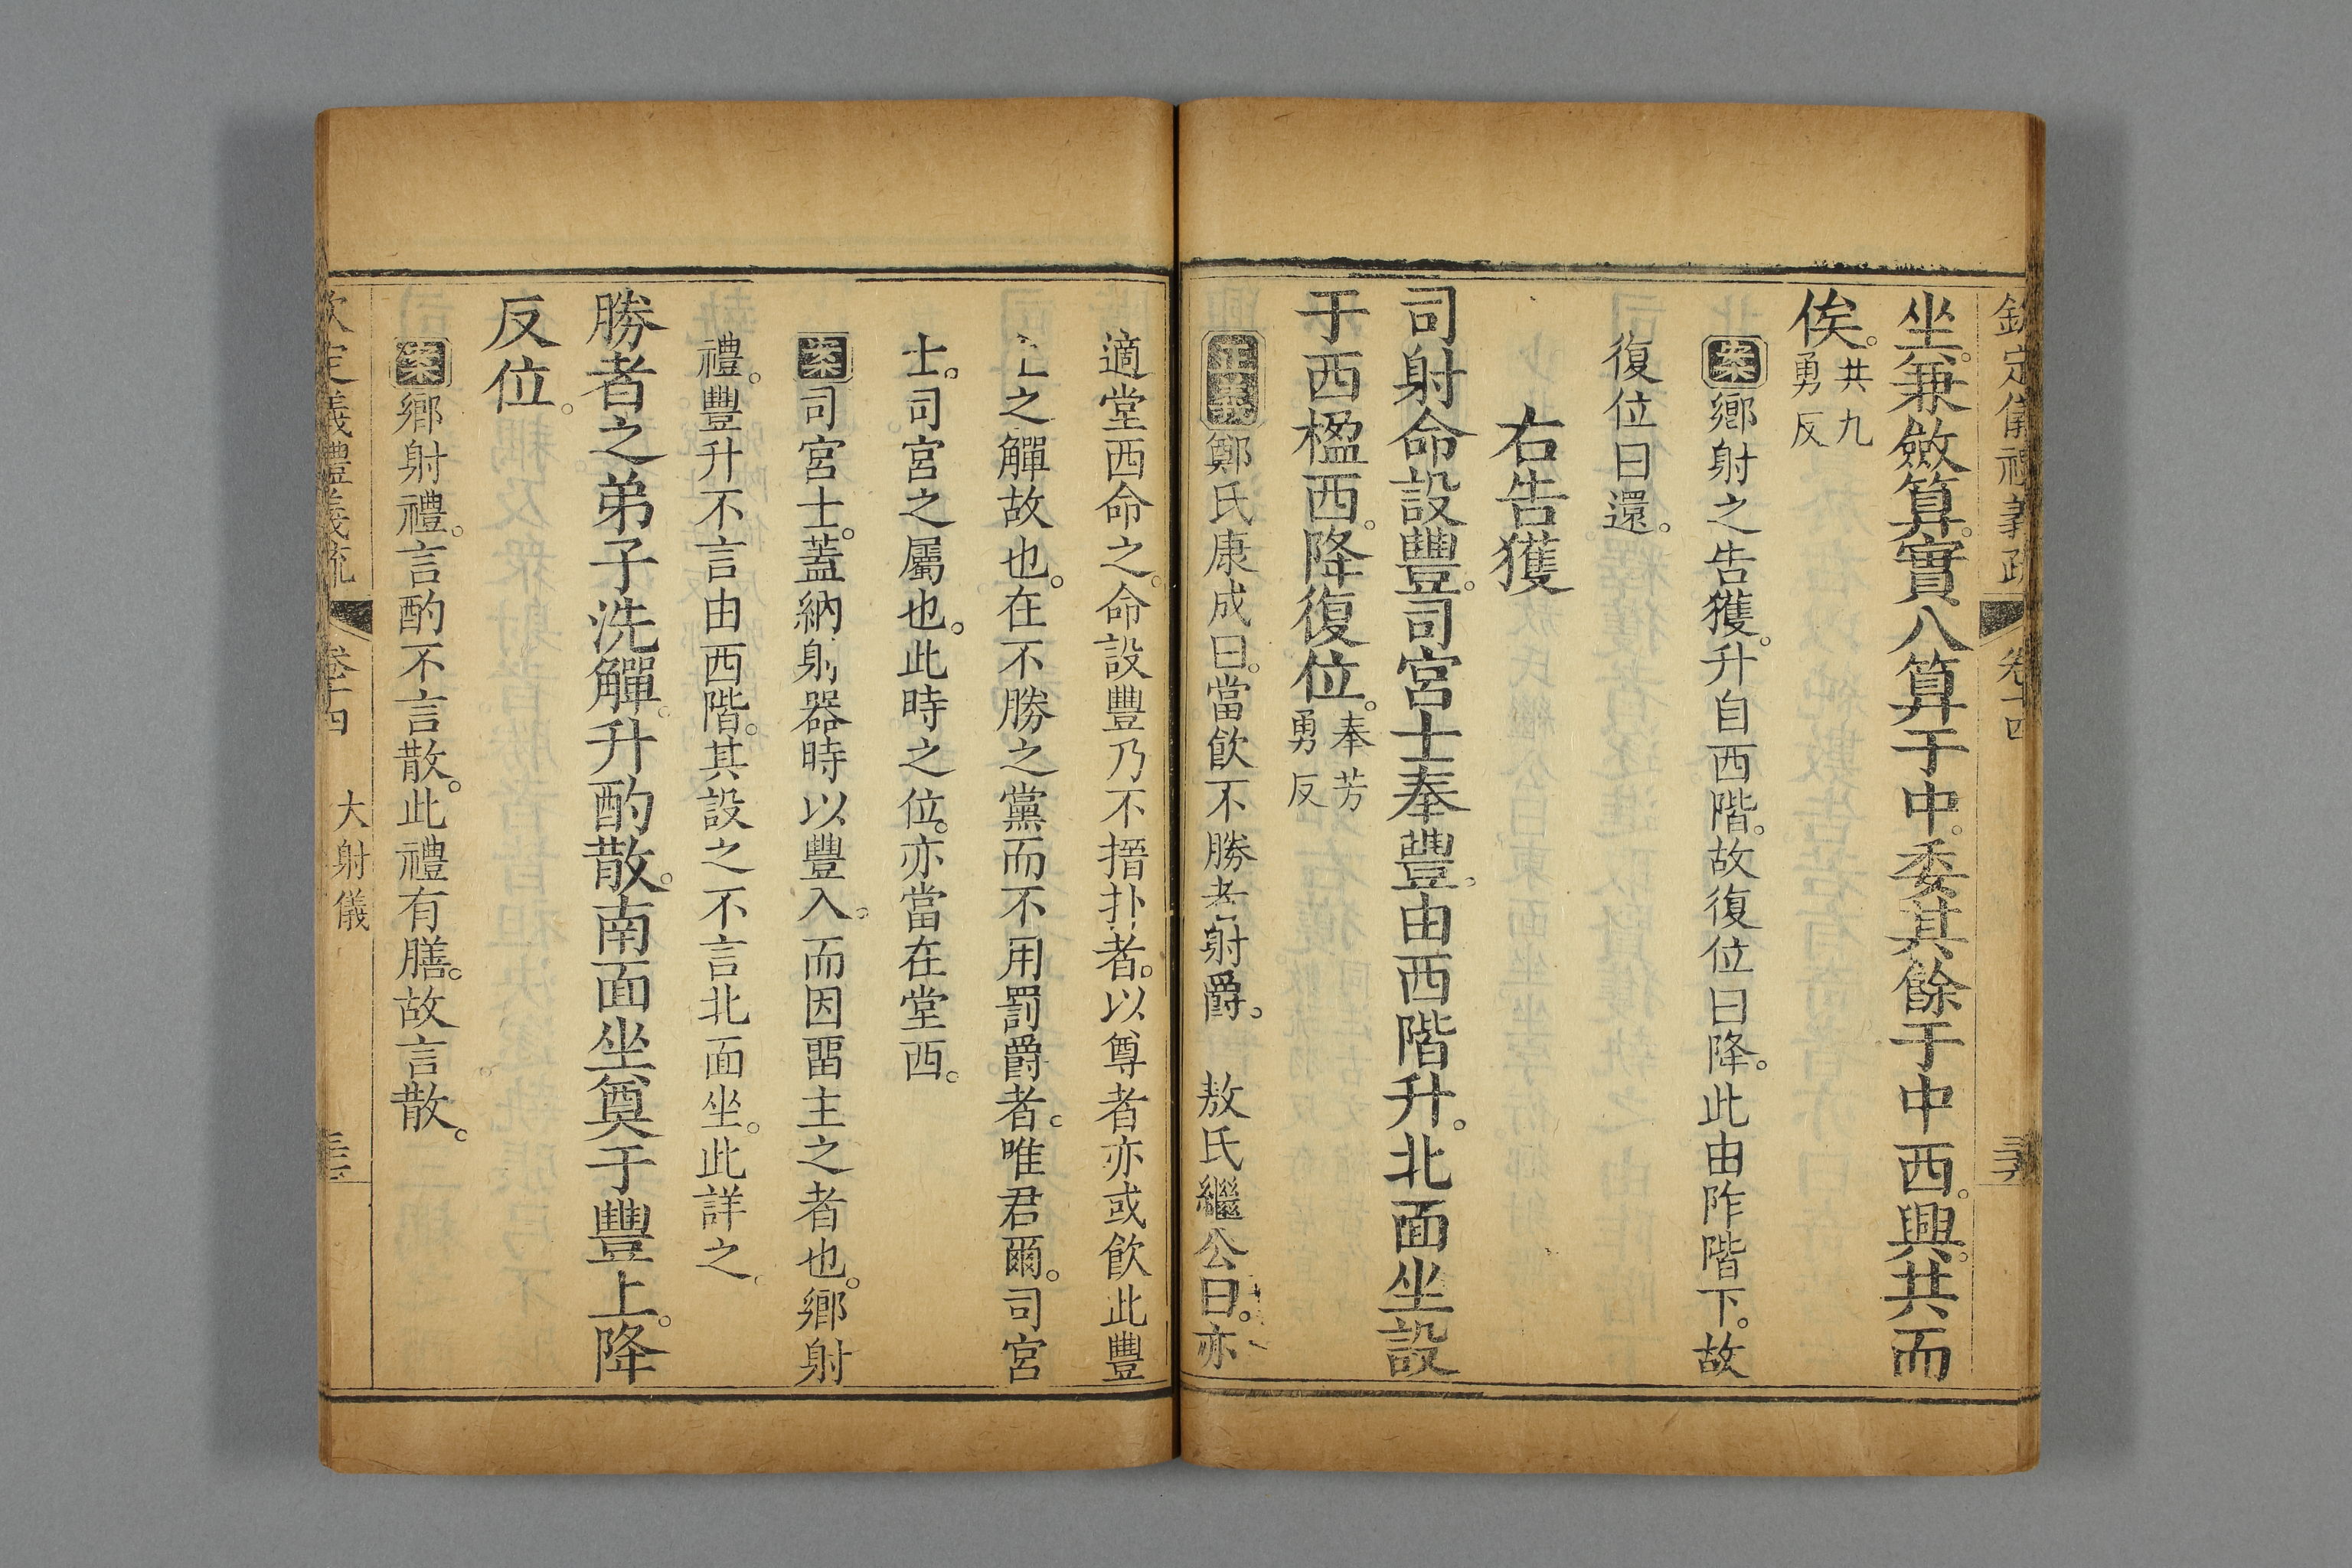 欽定儀禮義疏 卷十四
坐。兼斂算。實八算于中。委其餘于中西。興。共而
俟。共九勇反
案鄉射之告獲。升自西階。故復位曰降。此由阼階下。故
復位曰還。
右告獲
司射命設豐。司宮士奉豐。由西階升。北面坐設
于西楹西。降復位。奉芳勇反
正義鄭氏康成曰。當飲不勝者射爵。 敖氏繼公曰。亦
適堂西命之。命設豐乃不搢扑者。以尊者亦或飲此豐
上之觶故也。在不勝之黨而不用罰爵者。唯君爾。司宮
士。司宮之屬也。此時之位。亦當在堂西。
案司宮士。蓋納射器時以豐入。而因畱主之者也。鄉射
禮。豐升不言由西階。其設之不言北面坐。此詳之
勝者之弟子洗觶。升酌散。南面坐奠于豐上。降
反位。
案鄉射禮。言酌不言散。此禮有膳。故言散。
欽定儀禮義疏 卷十四 大射儀